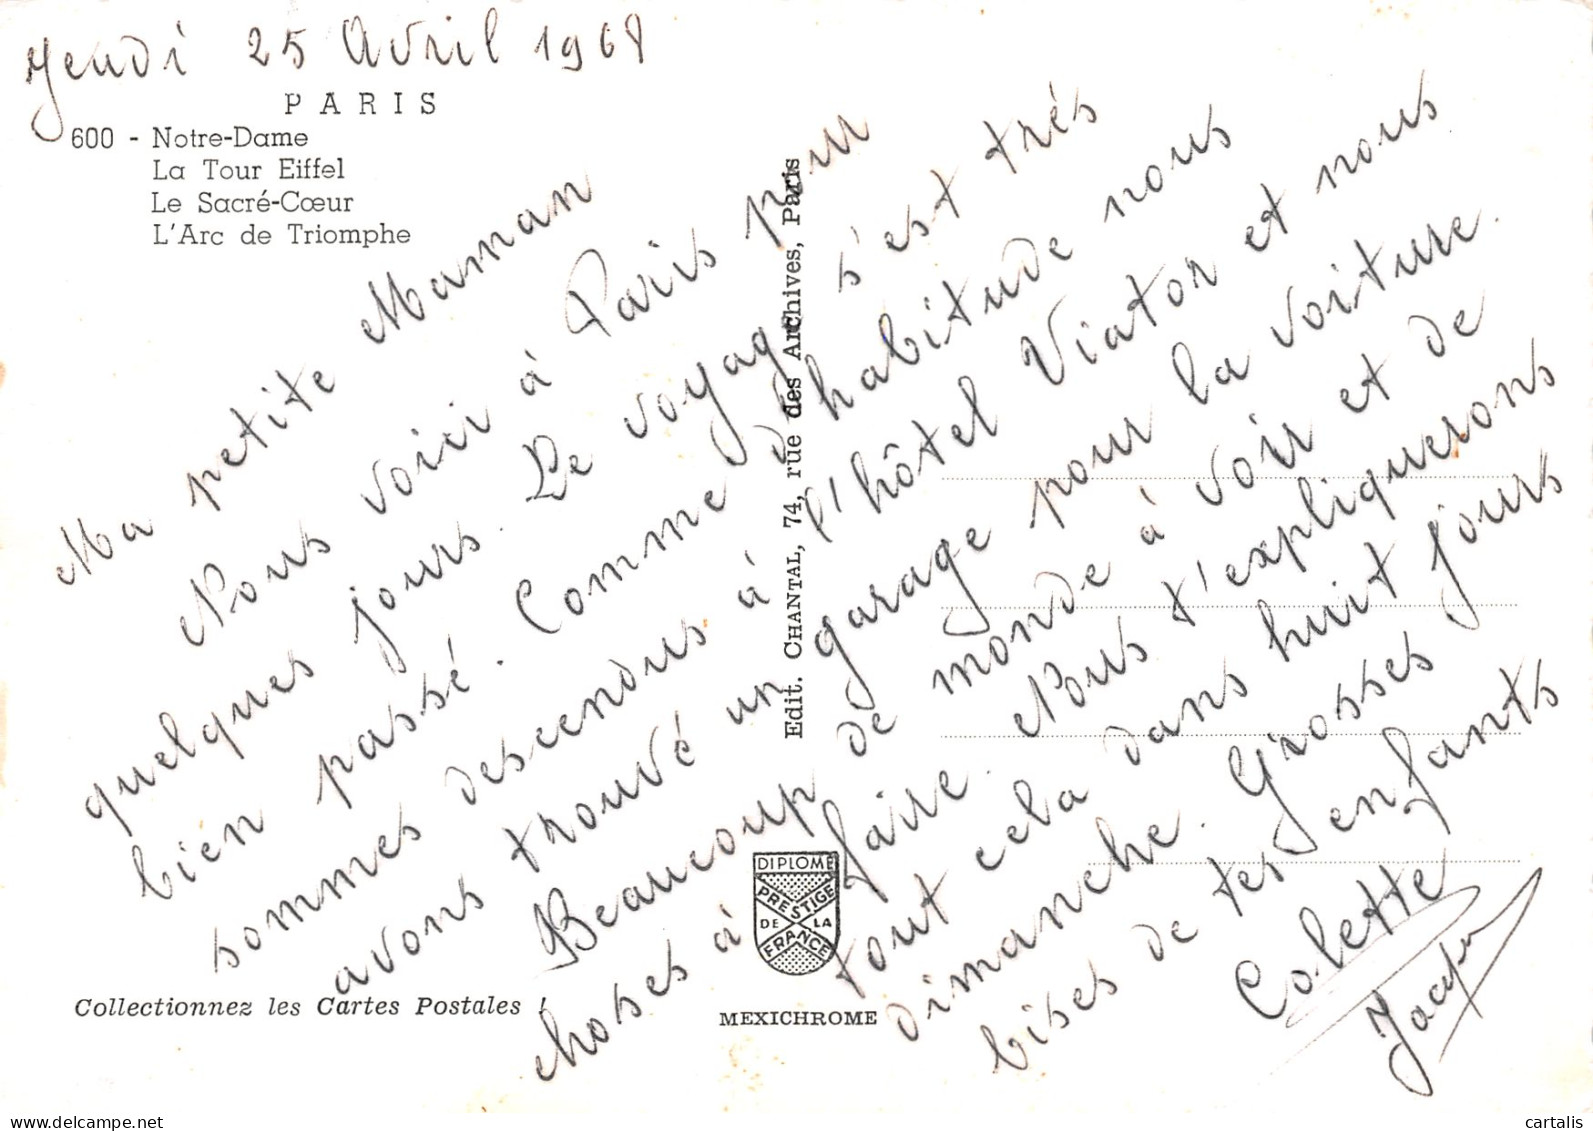 Jeudi 25 Avril 1968
PARIS
600 - Notre-Dame
La Tour Eiffel
Le Sacré-Cœur
L'Arc de Triomphe
Ma petite Maman
Nous voici à Paris pour
quelques jours. Le voyage s'est très
bien passé. Comme d'habitude nous
sommes descendus à l'hôtel Viator et nous
avons trouvé un garage pour la voiture.
Beaucoup de monde à voir et de
choses à faire. Nous t'expliquerons
tout cela dans huit jours
dimanche. Grosses
bises de tes enfants
Colette
Edit. CHANTAL, 74, rue des Archives, Paris
DIPLOME
PRESTIGE
DE LA
FRANCE
Collectionnez les Cartes Postales !
MEXICHROME
cartalis
www.delcampe.net